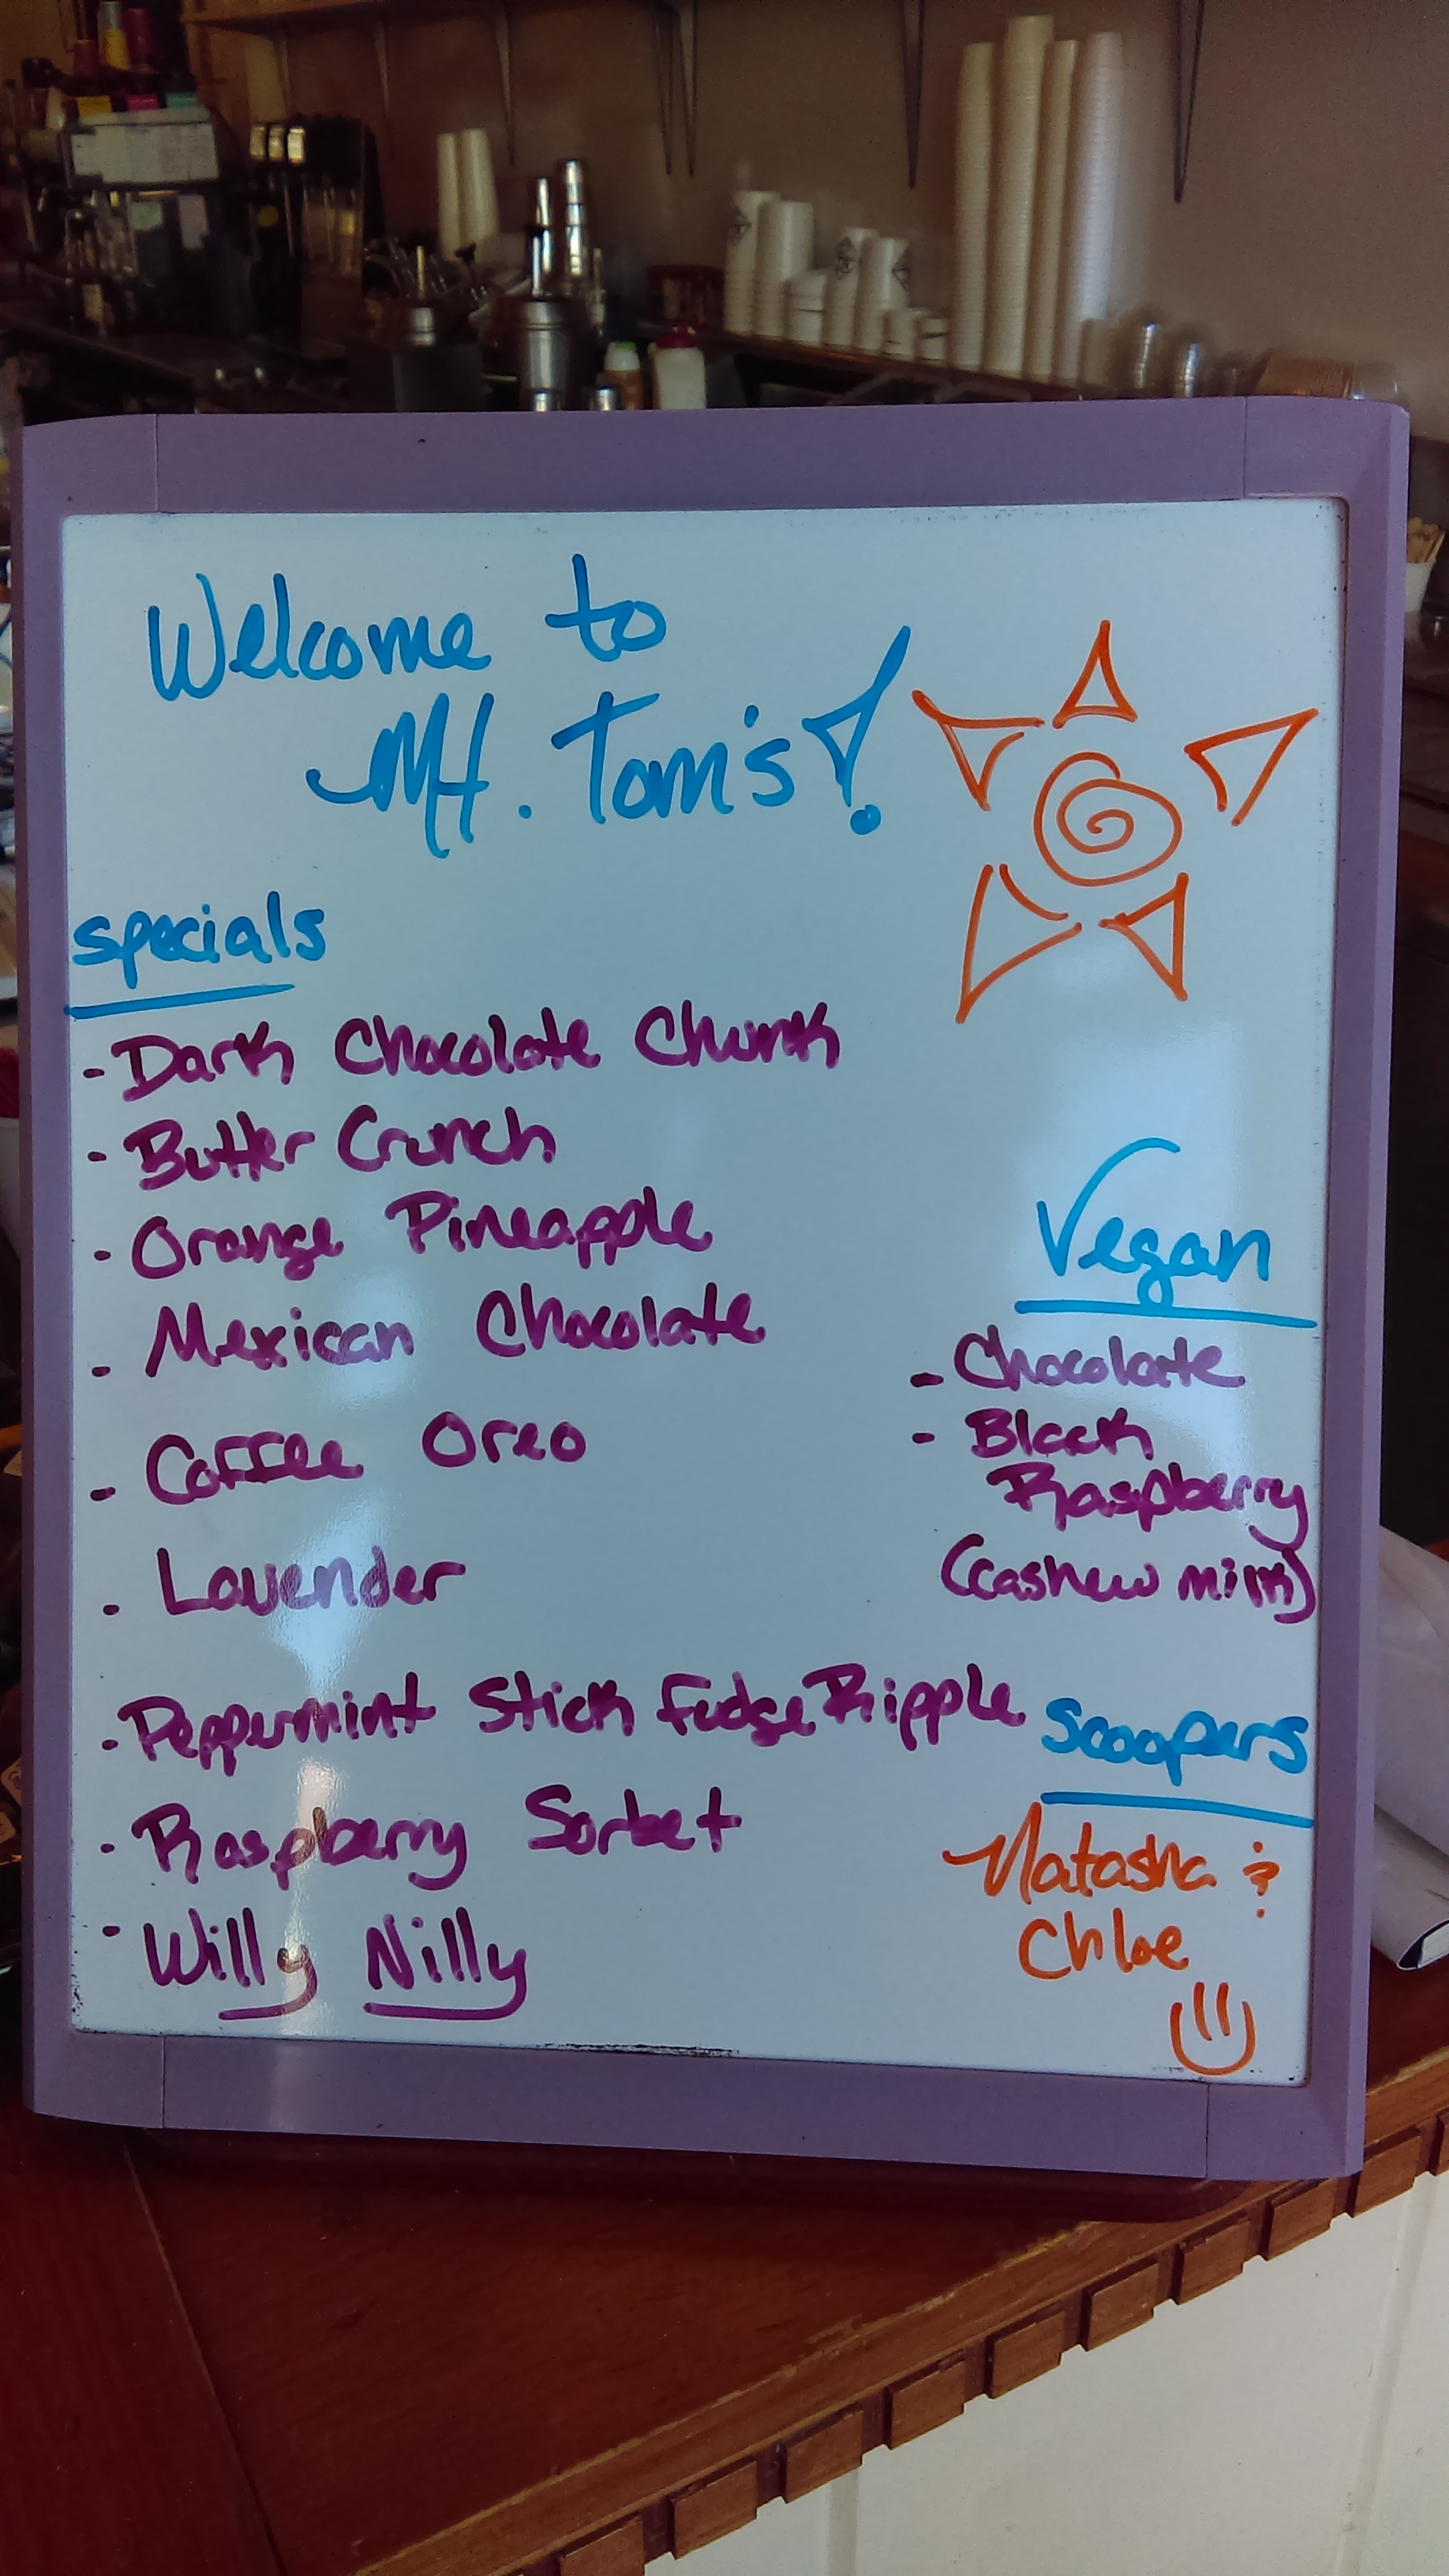 Welcome to
Mt. Tom's!
specials
- Dark Chocolate Chunk
- Butter Crunch
- Orange Pineapple
- Mexican Chocolate
- Coffee Oreo
- Lavender
- Peppermint Stick Fudge Ripple
- Raspberry Sorbet
- Willy Nilly
Vegan
- Chocolate
- Black
Raspberry
(cashew milk)
Scoopers
Natasha &
Chloe